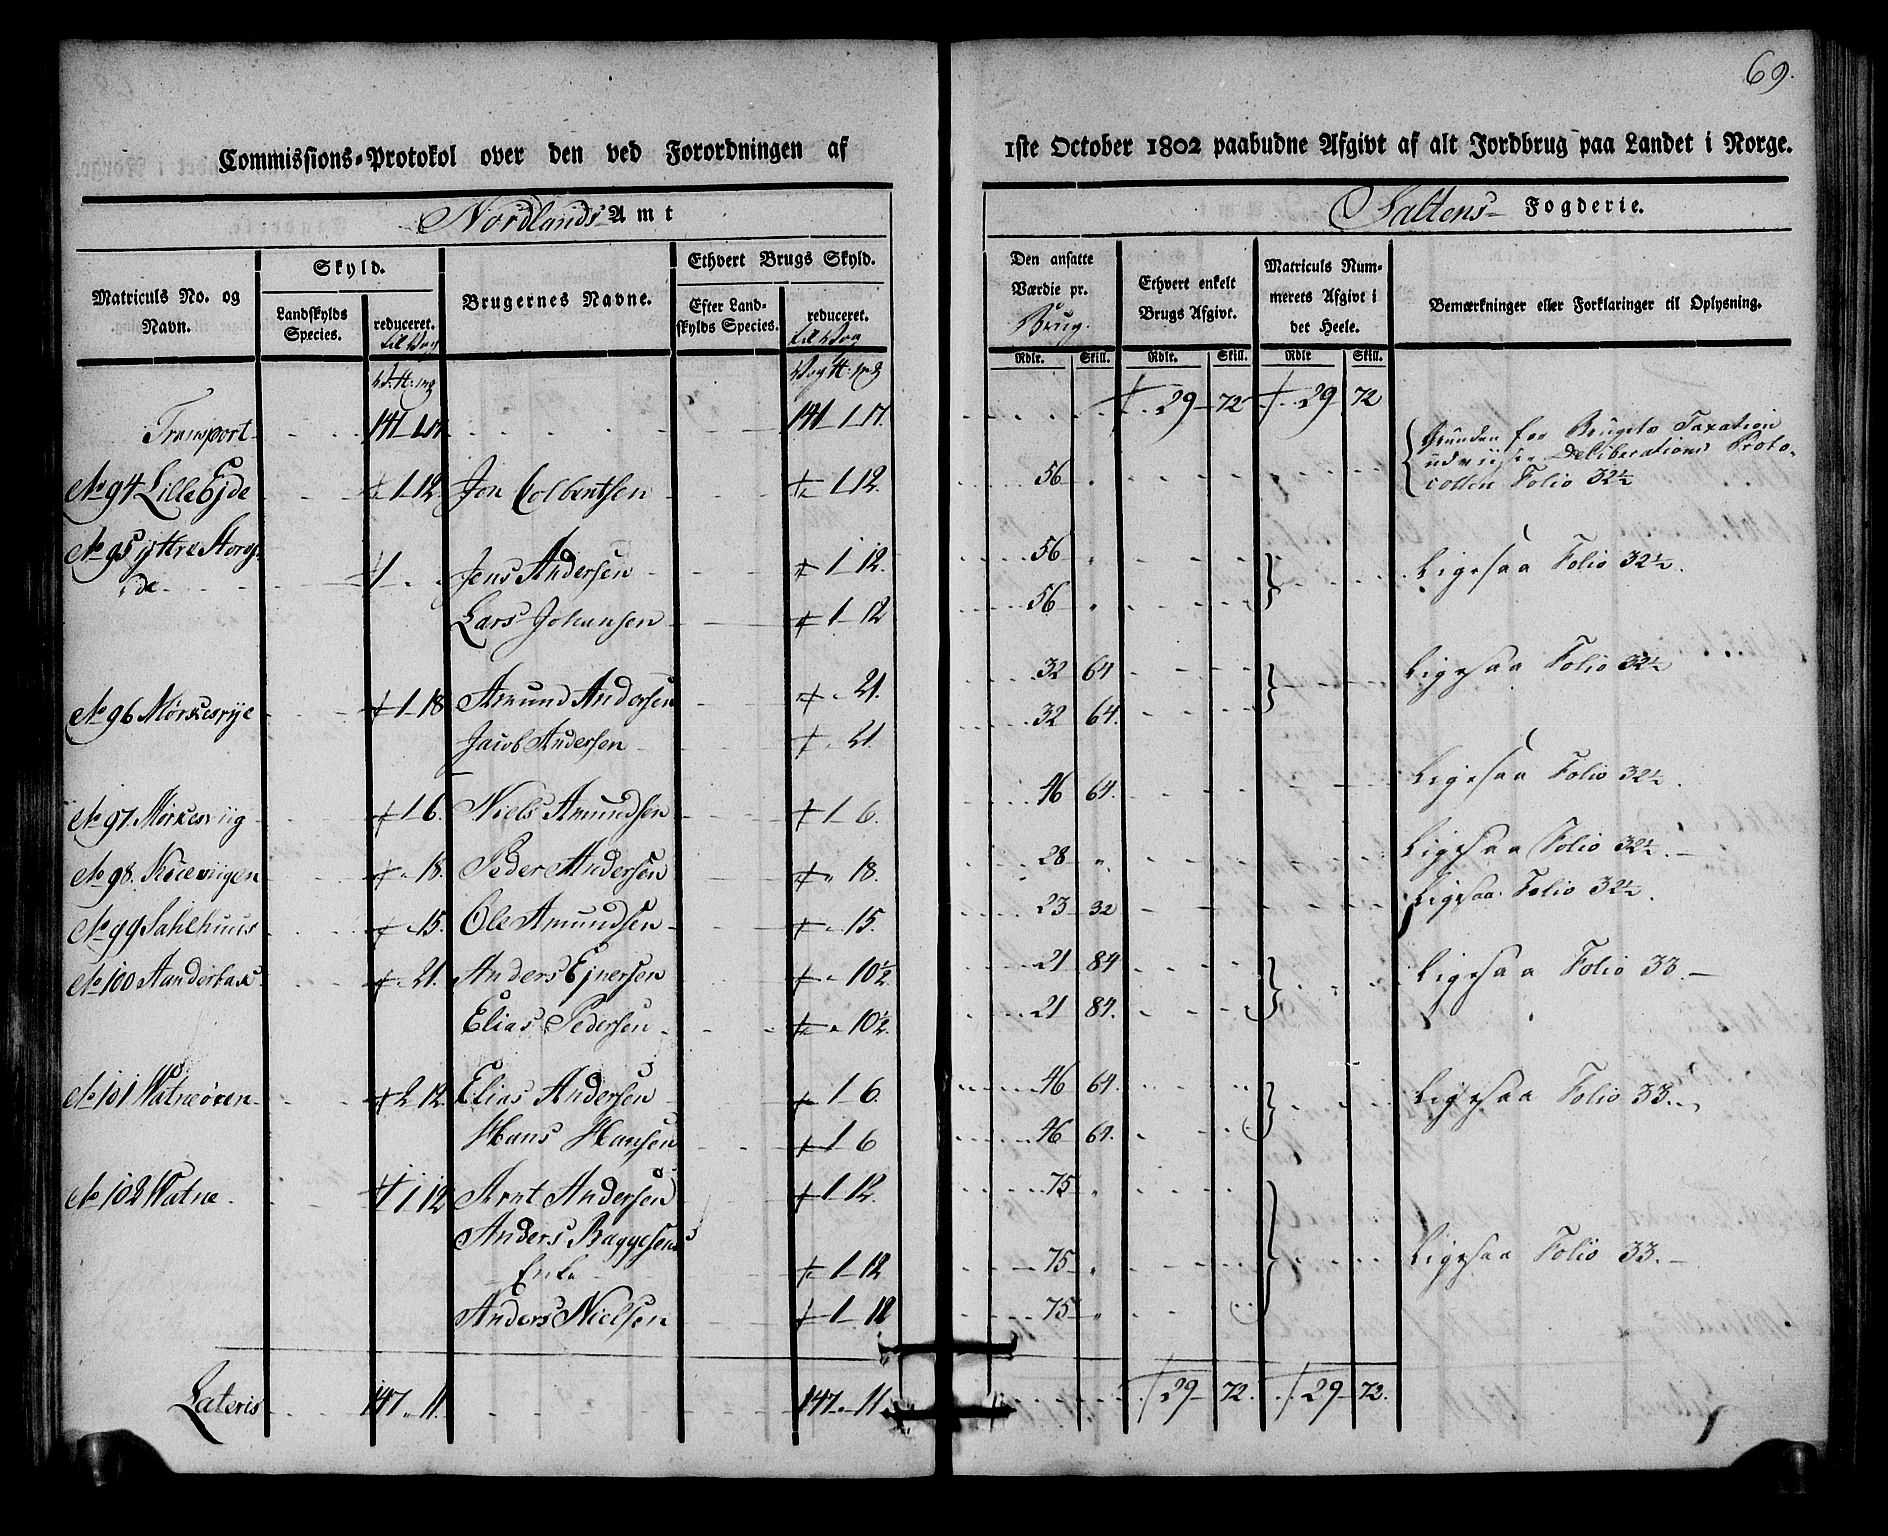 69.
Commissions-Protokol over den ved Forordningen af 1ste October 1802 paabudne Afgivt af alt Jordbrug paa Landet i Norge.
Nordlands Amt
Saltens Fogderie.
Matriculs No. og Navn.
Skyld.
Landskylds Species.
reduceret.
Brugernes Navne.
Ethvert Brugs Skyld.
Efter Landskylds Species.
reduceret.
Den ansatte Værdie pr. Brug.
Ethvert enkelt Brugs Afgivt.
Matriculs Nummerets Afgivt i det Heele.
Bemærkninger eller Forklaringer til Oplysning.
Rdlr. Skill. Rdlr. Skill. Rdlr Skill.
Transport 141 1 17 141 1 17. 29 72 29 72
Grunden for Brugets Taxation
udviiser Deliberations Proto-
collen Folio 32½
No 94 Lille Ejde 1 12 Jon Colbentsen 1 12. 56 „
No 95 yttre Storej-
de 1 „ Jens Andersen 1 12. 56 „ Ligesaa Folio 32½.
Lars Johansen 1 12 56 „
No 96 Mørkesvije 1 18 Amund Andersen „ 21. 32 64 Ligesaa Folio 32½
Jacob Andersen „ 21. 32 64.
No 97. Mørkesviig 1 6. Niels Amundsen 1 6. 46 64. Ligesaa Folio 32½.
No 98. Kocviigen „ 18. Peder Andersen „ 18. 28 „ Ligesaa Folio 32½.
No 99 Sahlhuus „ 15. Ole Amundsen „ 15. 23 32 Ligesaa Folio 32½.
No 100 Aanderbax „ 21. Anders Ejnersen „ 10½ 21 84 Ligesaa Folio 33.
Elias Pedersen „ 10½. 21 84.
No 101 Watneøren 2 12. Elias Andersen 1 6. 46 64. Ligesaa Folio 33.
Hans Hansen 1 6 46 64.
No 102 Watne. 1 12 Arnt Andersen 1 12. 75 „
Anders Baggesens
Enke 1 12 75 „ Ligesaa Folio 33.
Anders Nielsen 1 12 75 „
Lateris 147 „ 11. 147 „ 11. 29 72. 29 72.